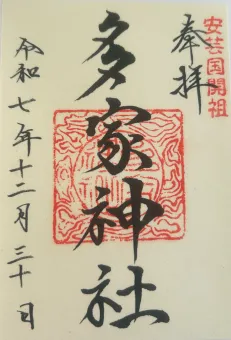 安芸国開祖
奉拝
多家神社
令和七年十二月三十日